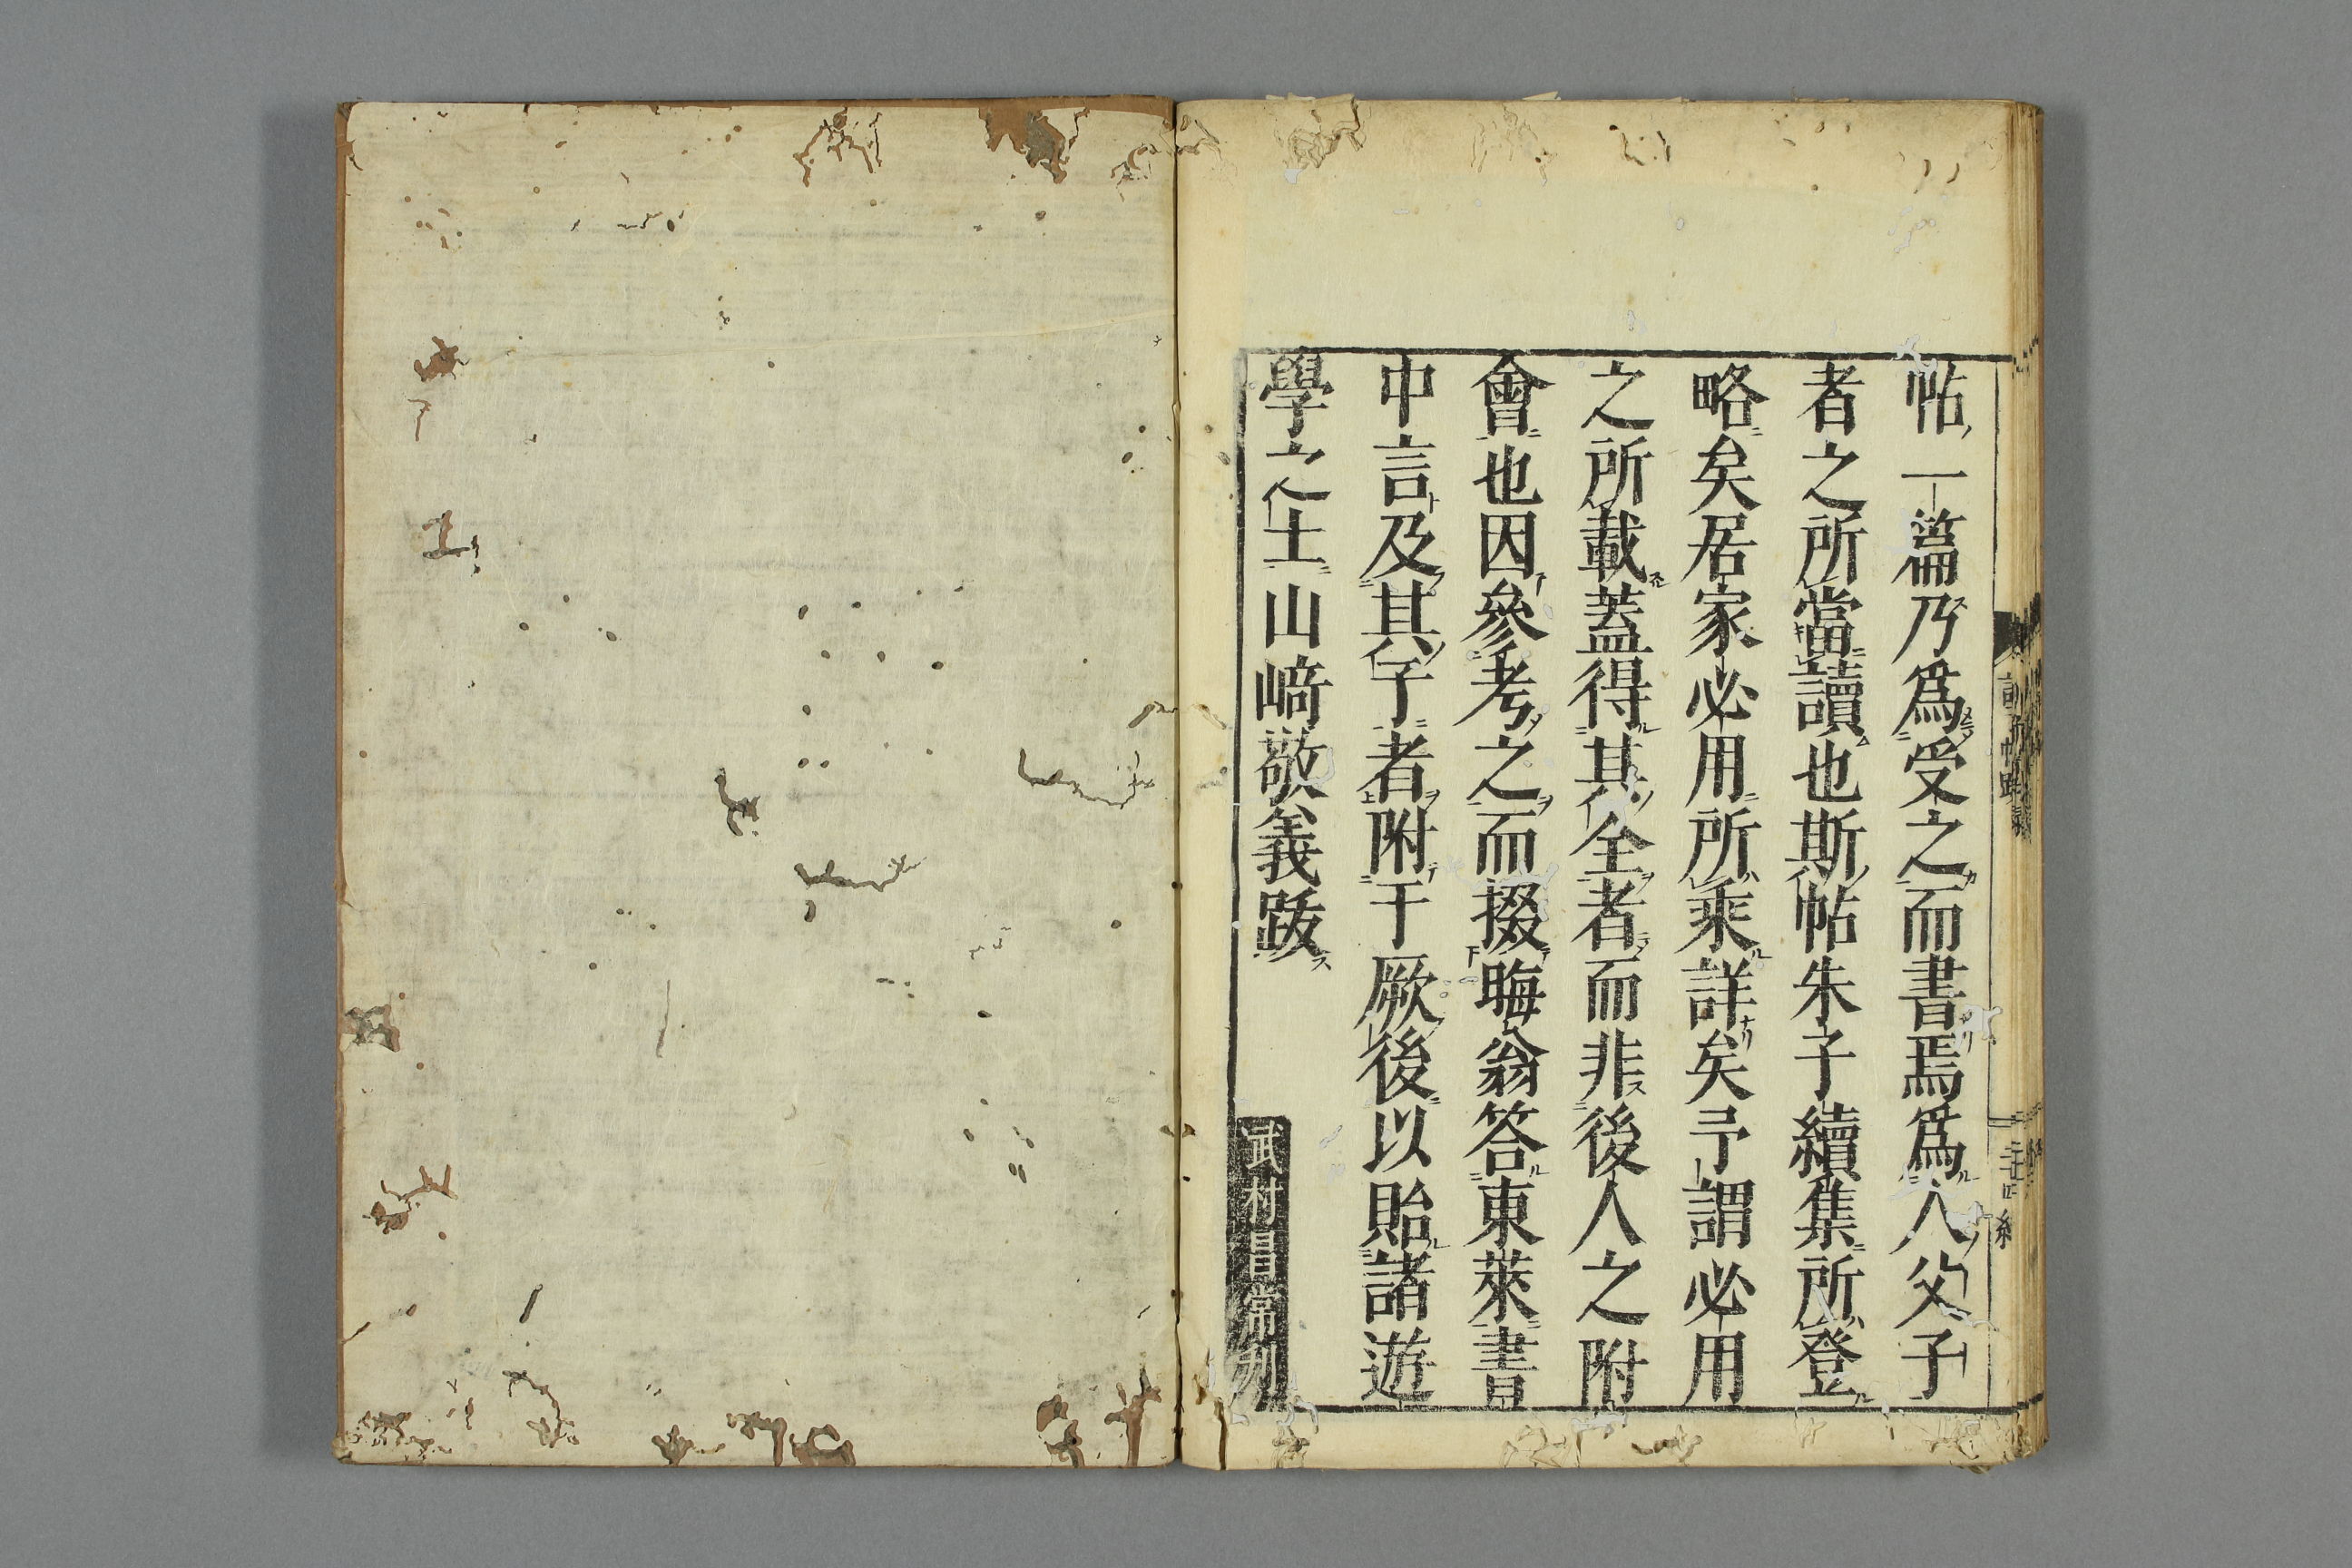 帖一篇乃爲受之而書焉爲人父子
者之所當讀也斯帖朱子續集所登
略矣居家必用所乘詳矣予謂必用
之所載蓋得其全者而非後人之附
會也因參考之而掇晦翁答東萊書
中言及其子者附于厥後以貽諸遊
學之士山﨑敬義跋
武村昌常刋